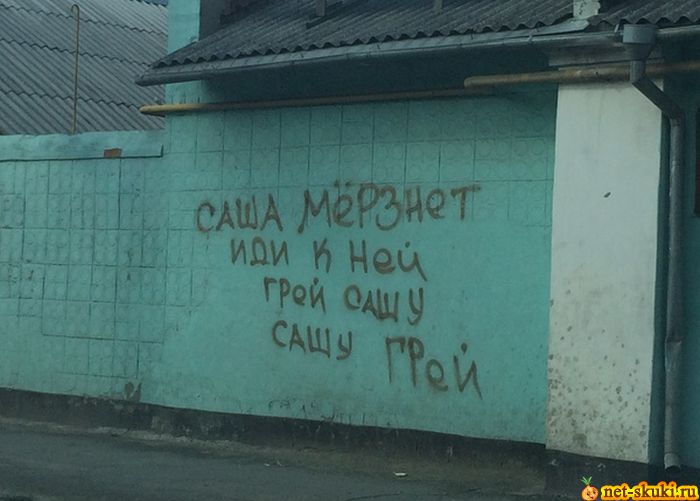 САША МЁРЗНЕТ
ИДИ К НЕЙ
ГРЕЙ САШУ
САШУ ГРЕЙ
net-skuki.ru